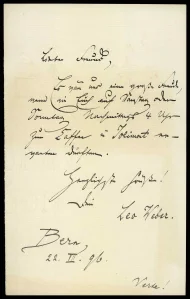 Lieber Freund,
Es wär uns eine große Freud,
wenn wir Euch auf Samstag oder
Sonntag Nachmittags 4 Uhr
zum Kaffee
erwarten dürften.
Herzlichste Grüße!
Dein
Leo Weber.
Bern,
22. II. 96.